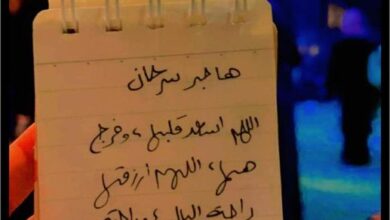 هاجر سرحان
اللهم اسعد قلبها وفرج
همها، اللهم ارزقها
راحة البال